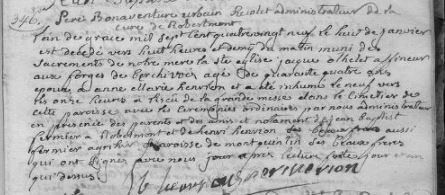 346.
Pere Bonaventure urbain Riolet administrateur de la
cure de Robertmont
l'an de grace mil sept cent quatre vingt neuf le huit de janvier
est decedé vers huit heures et demy du matin muni des
sacrements de notre mere la ste eglise jacque othelet affineur
aux forges de berchivoex agés De quarante quatre ans
epoux d'anne Marie henrion et a été inhumé le neuf vers
les onze heures a l'issu de la grande messe dans le cimetier de
cette paroisse avec les Ceremonies ordinaires par nous administrateur
en presence des parents et des amis et notament de jean baptist
fermier a Robelmont et de henri henrion ses beaux freres aussi
fermier paroisse de montquintin ses beaux freres
qui ont signés avec nous jour apres lecture faite jour et an
que dessus
henrion